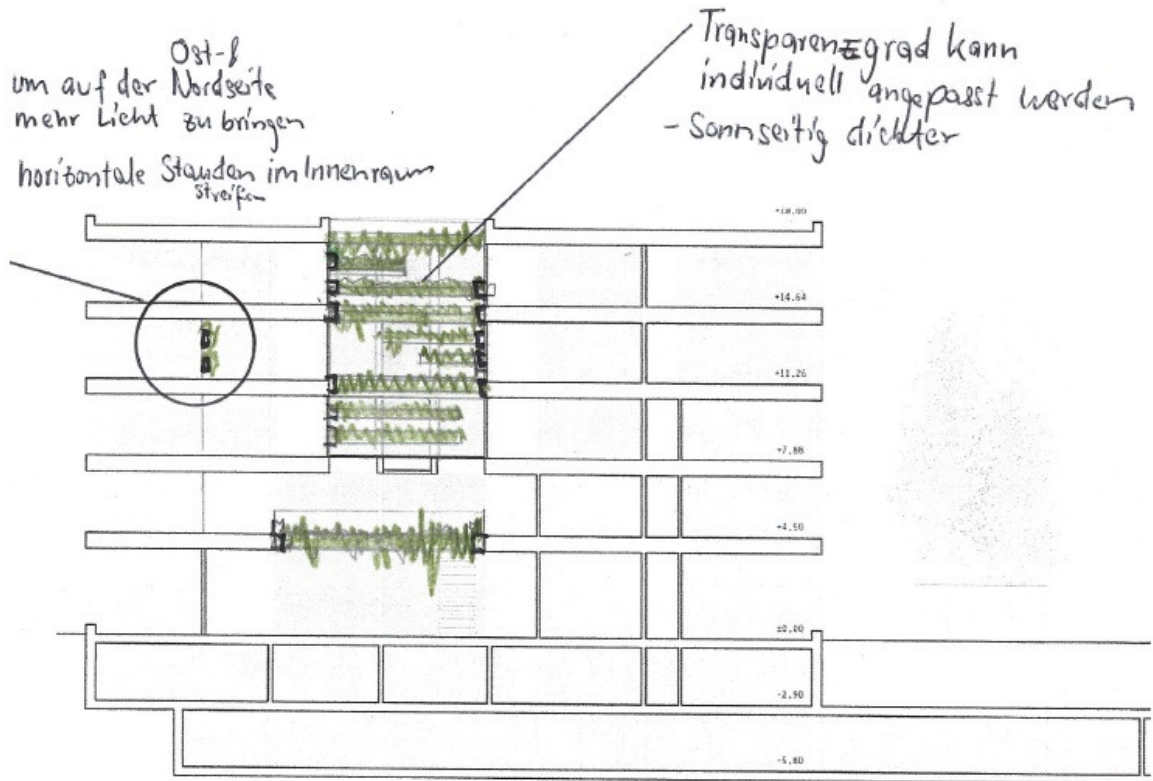 Ost-
um auf der Nordseite
mehr Licht zu bringen
horizontale Stauden im Innenraum
streifen
Transparenzgrad kann
individuell angepasst werden
- Sonnseitig dichter
+18.00
+14.64
+11.26
+7.88
+4.50
±0.00
-2.90
-5.80